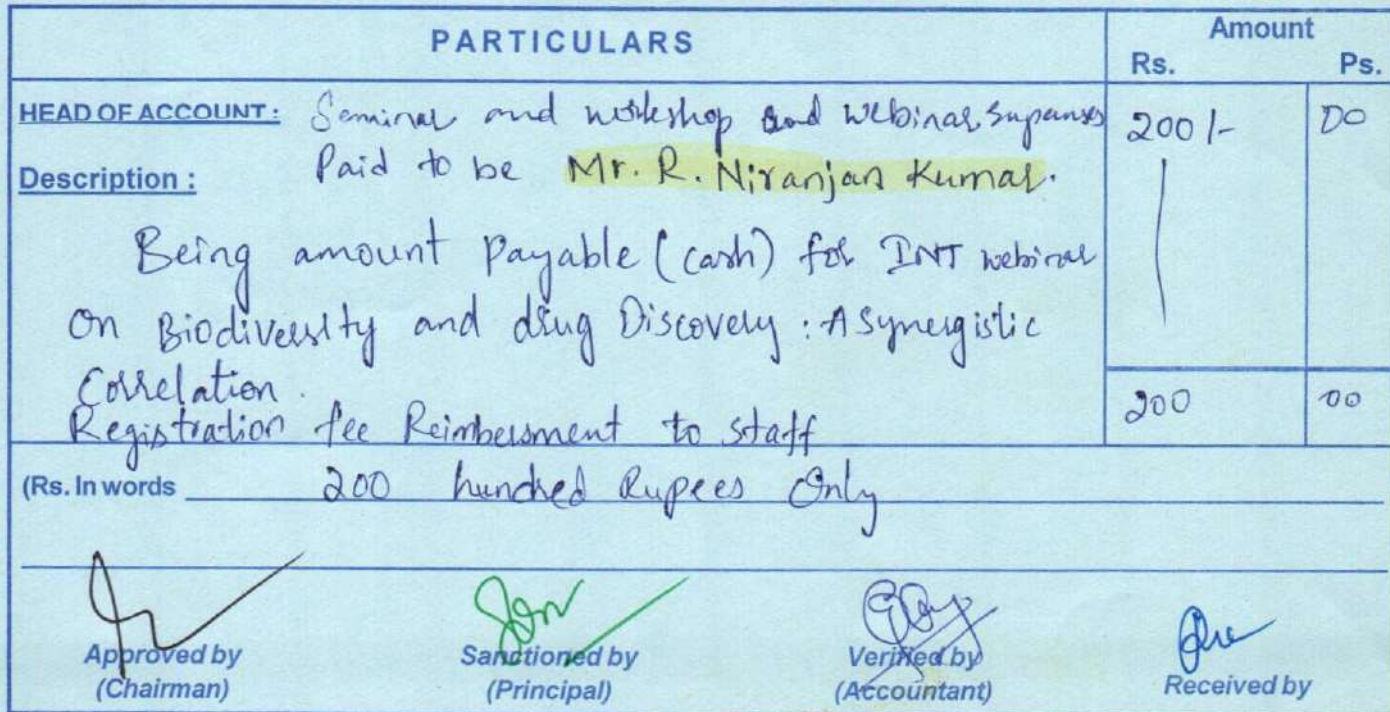 PARTICULARS
Amount
Rs. Ps.
HEAD OF ACCOUNT : Seminar and workshop and webinar Expanses 200/- 00
Description : Paid to be Mr. R. Niranjan Kumar.
Being amount payable (cash) for INT webinar
on Biodiversity and drug Discovery : A Synergistic
Correlation.
Registration fee Reimbersment to staff 200 00
(Rs. In words 200 hundred Rupees Only
Approved by Sanctioned by Verified by Received by
(Chairman) (Principal) (Accountant)